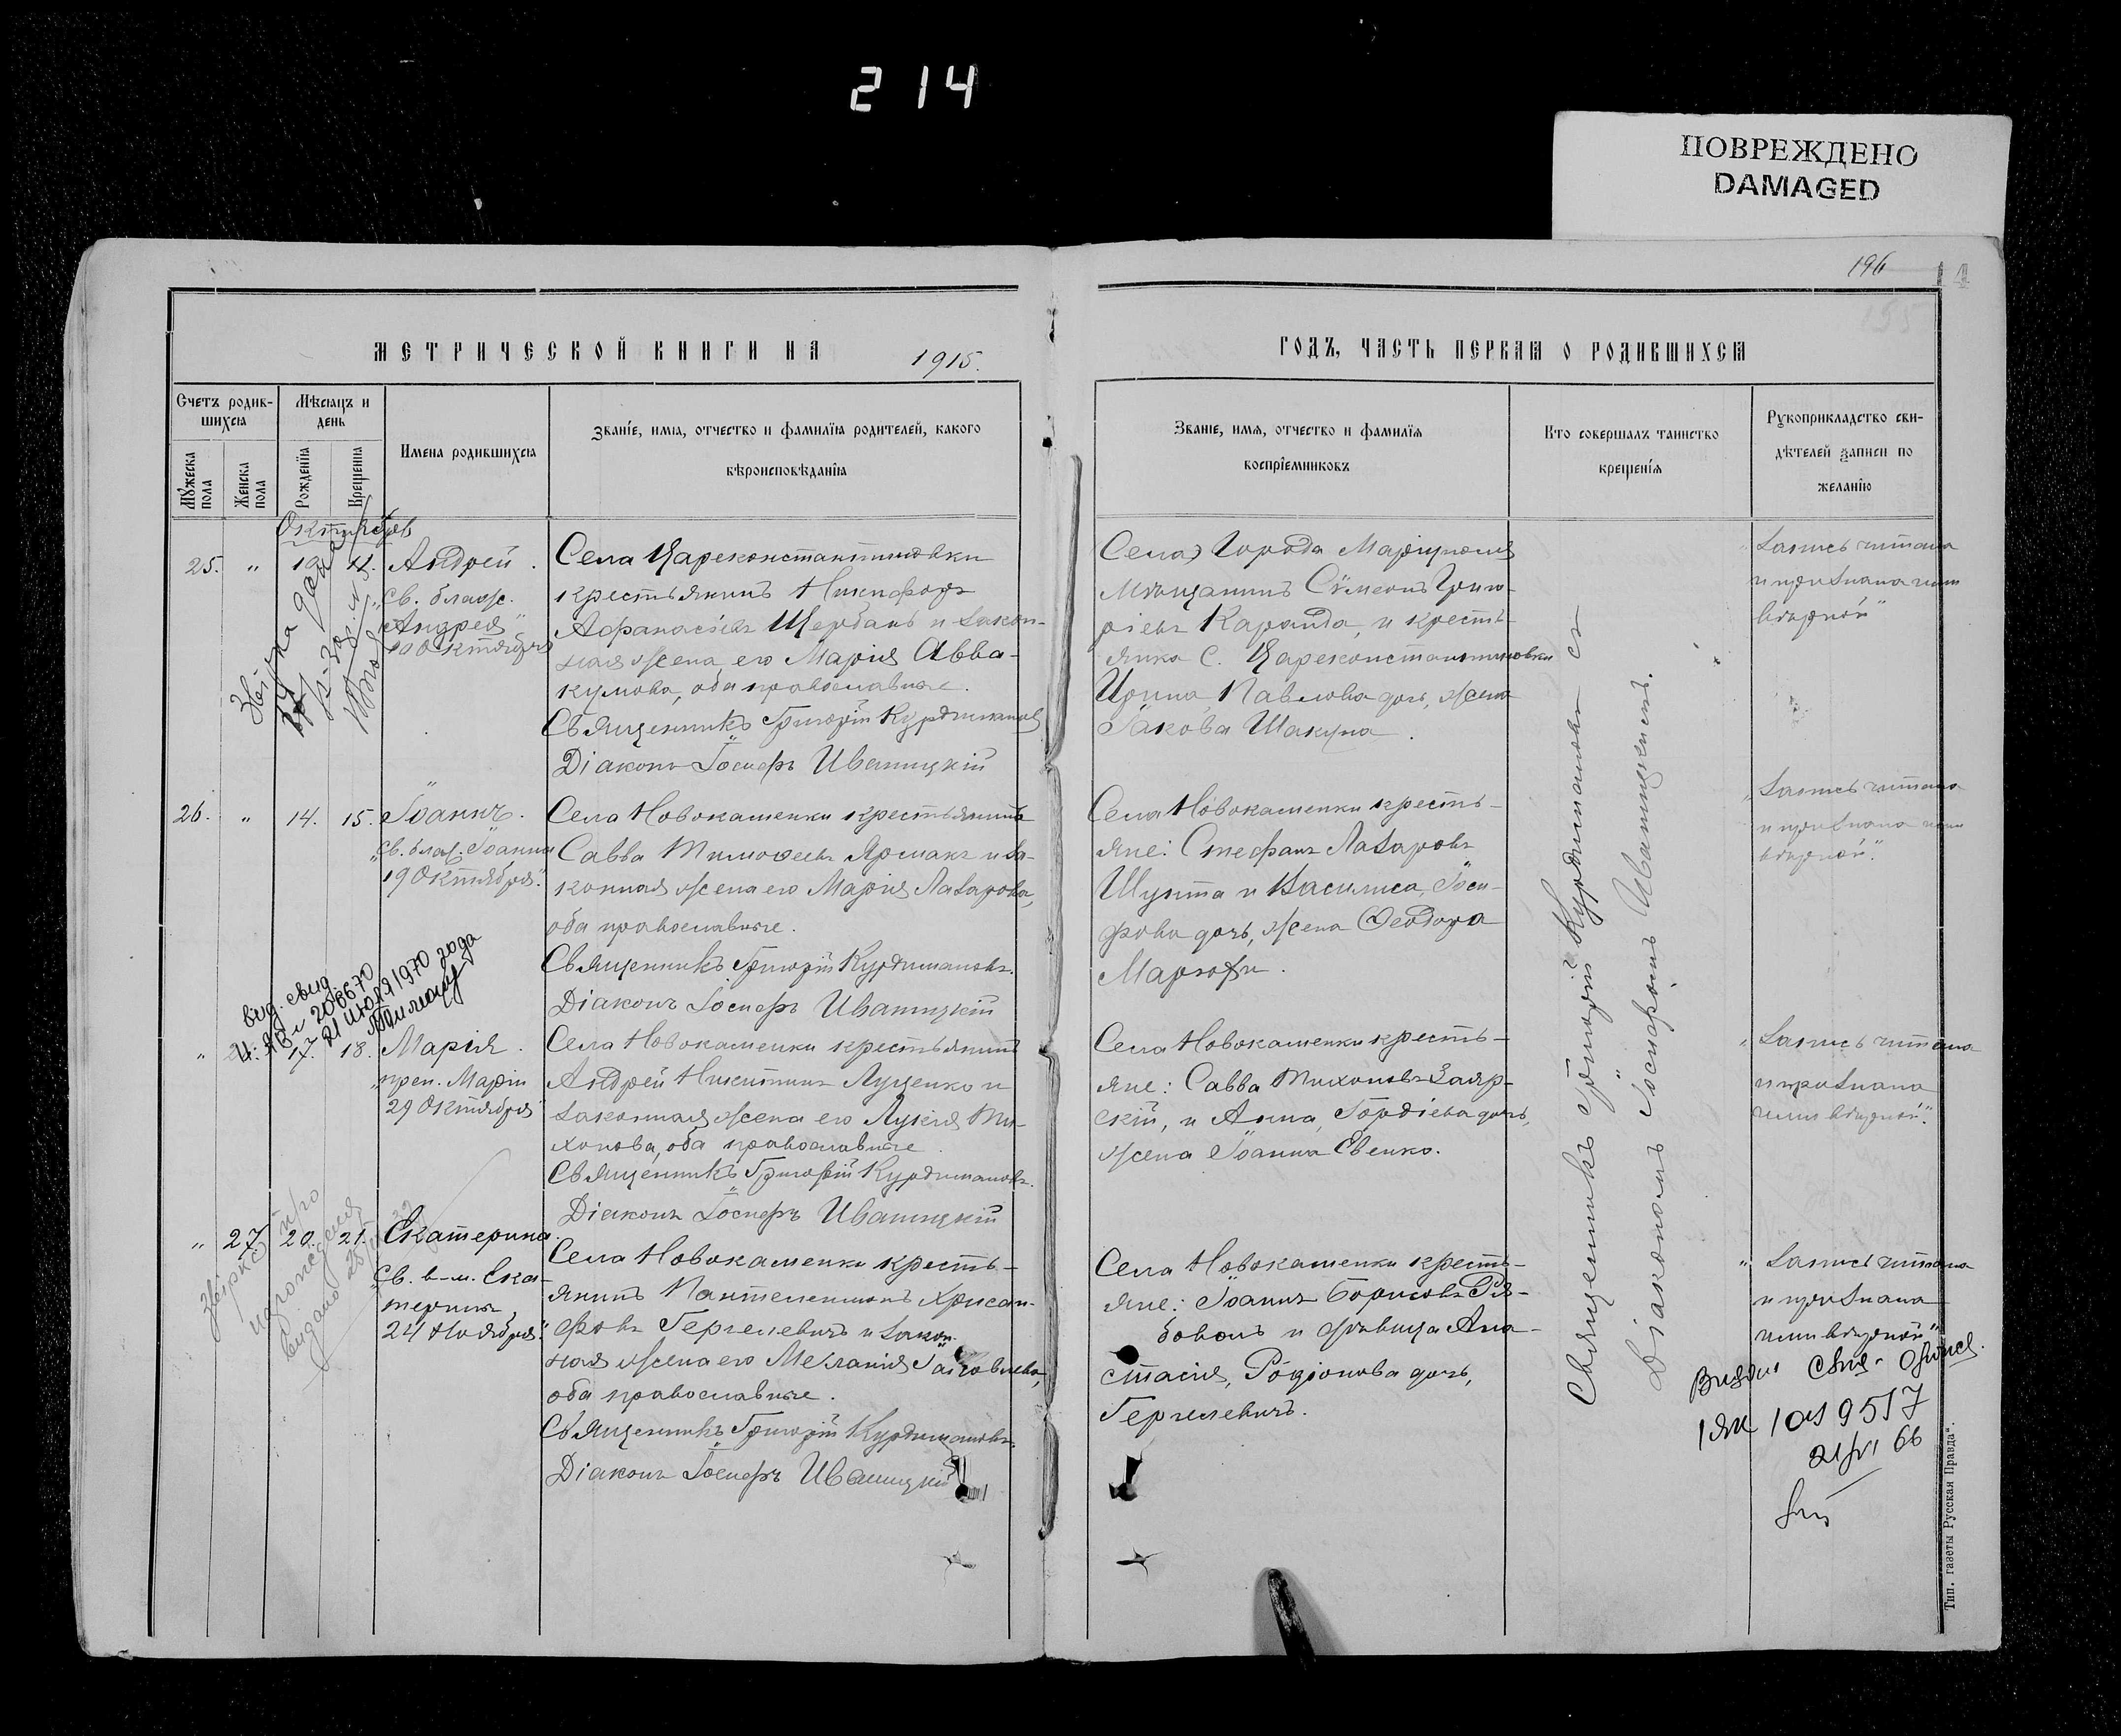 214
ПОВРЕЖДЕНО
DAMAGED
196
МЕТРИЧЕСКОЙ КНИГИ НА 1915.
ГОДЪ, ЧАСТЬ ПЕРВАЯ О РОДИВШИХСЯ
Счетъ родив-
шихся
Мужеска пола
Женска пола
Мѣсяцъ и
день
Рожденія
Крещенія
Имена родившихся
Званіе, имя, отчество и фамилія родителей, какого
вѣроисповѣданія
Званіе, имя, отчество и фамилія
воспріемниковъ
Кто совершалъ таинство
крещенія
Рукоприкладство сви-
дѣтелей записи по
желанію
Октябрь
25. " 10 11. Андрей.
"Св. блаж.
Андрея"
Октября
Села Цареконстантиновки
крестьянинъ Никифоръ
Афанасіевъ Щербань и закон-
ная жена его Марія Авва-
кумова, оба православные.
Священникъ Григорій Курдиманов
Діаконъ Іосифъ Иваницкій
Города Маріуполя
мѣщанинъ Сѵмеонъ Григо-
ріевъ Каранда, и кресть-
янка с. Цареконстантиновки
Ирина Павлова дочь, жена
Іакова Шакуна.
"Запись читана
и признана нами
вѣрной"
26. " 14. 15. Іоаннъ.
"Св. блаж. Іоанна
19 Октября".
Села Новокаменки крестьянинъ
Савва Тимоѳеевъ Ярмакъ и за-
конная жена его Марія Лазарова,
оба православные.
Священникъ Григорій Курдимановъ.
Діаконъ Іосифъ Иваницкій
Села Новокаменки кресть-
яне: Стефанъ Лазаровъ
Шульга и Василиса, Іоси-
фова дочь, жена Ѳеодора
"Запись читана
и признана нами
вѣрной".
выд. свид.
208670
21 июля 1970 года
" 17. 18. Марія.
"преп. Маріи
29 Октября"
Села Новокаменки крестьянинъ
Андрей Никитинъ Луценко и
законная жена его Лукія Ти-
хонова, оба православные.
Священникъ Григорій Курдимановъ.
Діаконъ Іосифъ Иваницкій
Села Новокаменки кресть-
яне: Савва Тихоновъ Заяр-
скій, и Анна, Гордіева дочь,
жена Іоанна Евенко.
"Запись читана
и признана
нами вѣрной".
" 27 20. 21. Екатерина.
"Св. в-м. Ека-
терины,
24 Ноября".
Села Новокаменки кресть-
янинъ Пантелеимонъ Хрисан-
фовъ Гергелевичъ и закон-
ная жена его Меланія Іаковлева,
оба православные.
Священникъ Григорій Курдимановъ.
Діаконъ Іосифъ Иваницкій
Села Новокаменки кресть-
яне: Іоаннъ Борисовъ Ря-
боволъ и дѣвица Ана-
стасія, Родіонова дочь,
Гергелевичъ.
"Запись читана
и признана
нами вѣрной"
Священникъ Григорій Курдимановъ съ
Діакономъ Іосифомъ Иваницкимъ.
Тип. газеты Русская Правда".